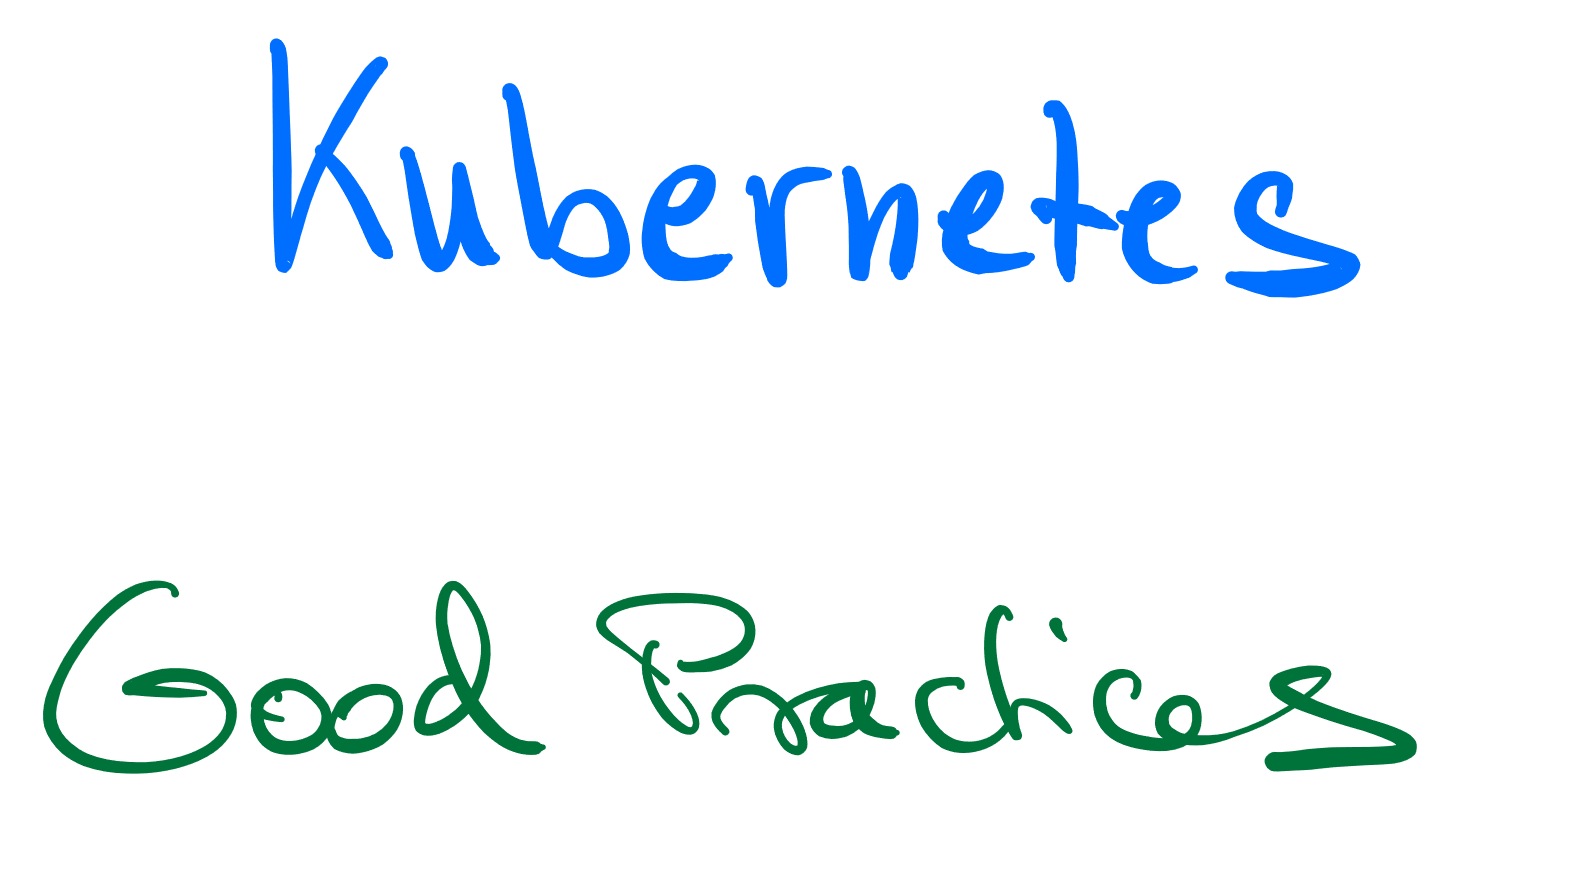 Kubernetes
Good Practices